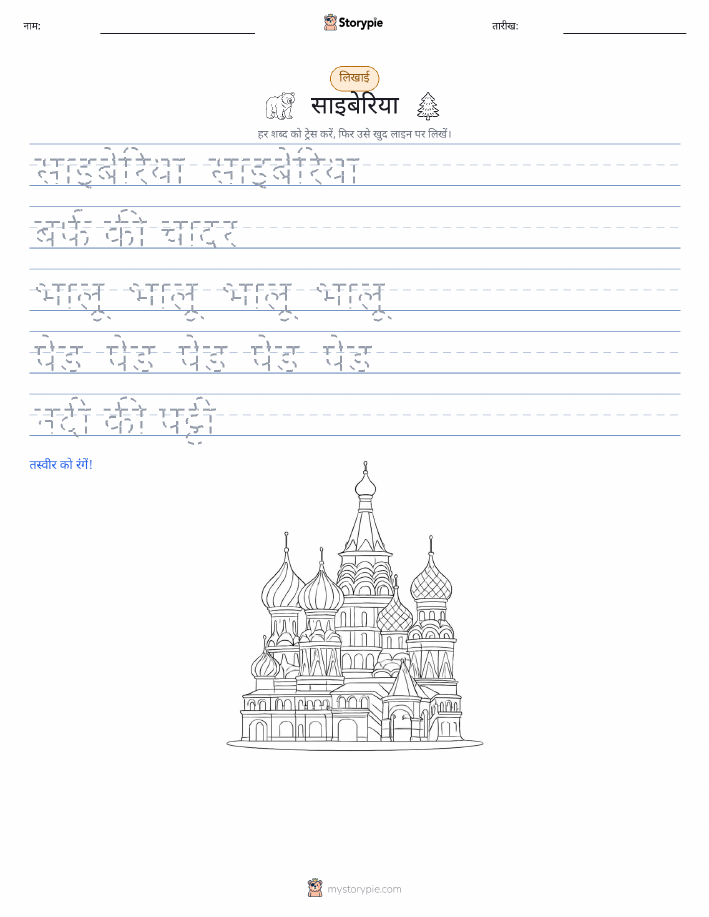 नाम:
Storypie
तारीख:
लिखाई
साइबेरिया
हर शब्द को ट्रेस करें, फिर उसे खुद लाइन पर लिखें।
साइबेरिया साइबेरिया
बर्फ की चादर
भालू भालू भालू भालू
पेड पेड पेड पेड पेड
नदी की पट्टी
तस्वीर को रंगें!
mystorypie.com